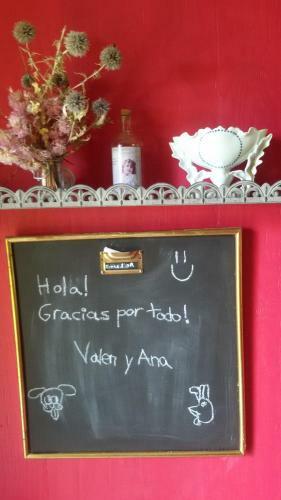 Hola!
Gracias por todo!
Valen y Ana